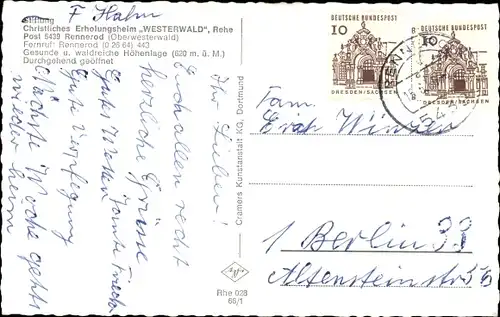 F Hahn
Stiftung
Christliches Erholungsheim „WESTERWALD", Rehe
Post 5439 Rennerod (Oberwesterwald)
Fernruf: Rennerod (0 26 64) 443
Gesunde u. waldreiche Höhenlage (620 m. ü. M.)
Durchgehend geöffnet
Ihr Lieben!
Euch allen recht
herzliche Grüsse
Gutes Wetter
Gute Verpflegung
Nächste Woche gehts
wieder heim
Cramers Kunstanstalt KG, Dortmund
Rhe 028
68/1
DEUTSCHE BUNDESPOST
10
DRESDEN/SACHSEN
DEUTSCHE BUNDESPOST
10
DRESDEN/SACHSEN
Fam.
1 Berlin 33
Altensteinstr 56